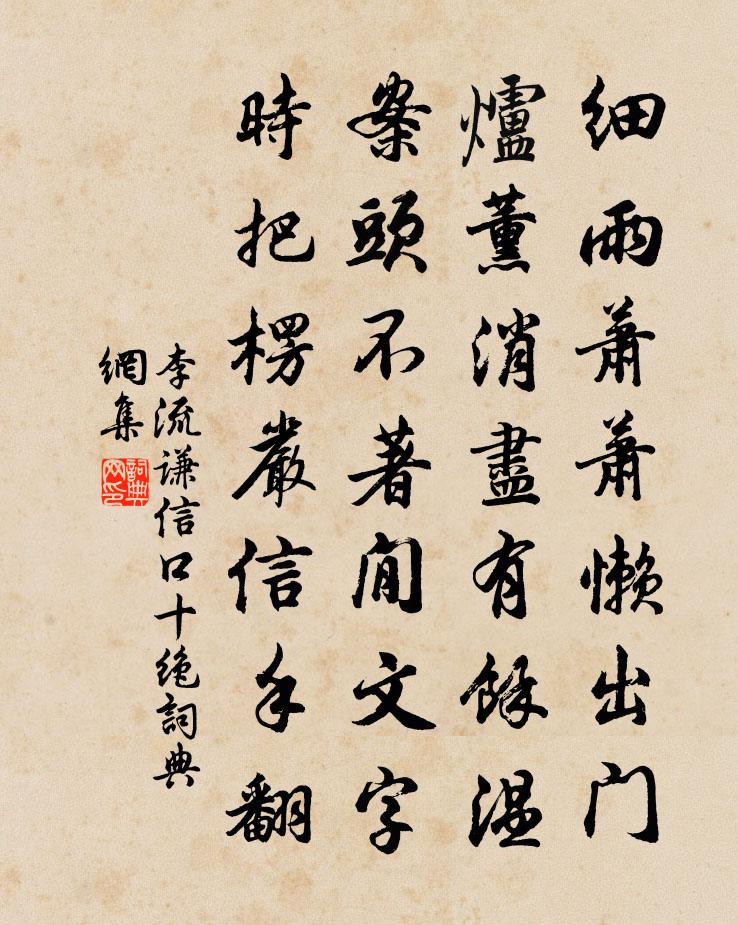 細雨蕭蕭懶出门
爐薰消盡有餘温
案頭不著閒文字
時把楞嚴信手翻
李流謙信口十绝詞典
網集
詞典网印